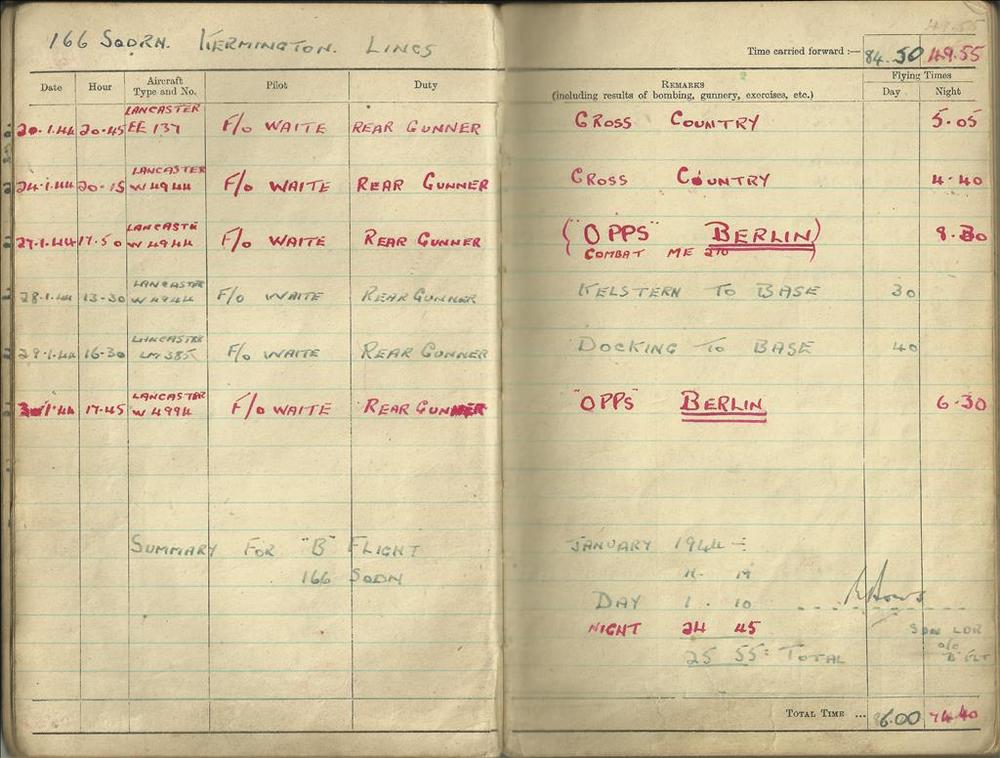 166 SQDRN. KERMINGTON. LINCS
Time carried forward :— 84.50 49.55
Date Hour Aircraft Type and No. Pilot Duty REMARKS (including results of bombing, gunnery, exercises, etc.) Flying Times Day Night
20.1.44 20.45 LANCASTER EE 137 F/o WAITE REAR GUNNER CROSS COUNTRY 5.05
24.1.44 20.15 LANCASTER W 4944 F/o WAITE REAR GUNNER CROSS COUNTRY 4.40
27.1.44 17.50 LANCASTE W 4944 F/o WAITE REAR GUNNER ("OPPS" BERLIN) 8.30
COMBAT ME 210
28.1.44 13-30 LANCASTER W 4944 F/o WAITE REAR GUNNER KELSTERN TO BASE 30
29.1.44 16-30 LANCASTER LM 385 F/o WAITE REAR GUNNER DOCKING TO BASE 40
30.1.44 17.45 LANCASTER W 4994 F/o WAITE REAR GUNNER "OPPS" BERLIN 6.30
SUMMARY FOR "B" FLIGHT JANUARY 1944 :-
166 SQDN H. M
DAY 1 . 10
NIGHT 24 45 SDN LDR
25 55 : TOTAL o/c "B" FLT
TOTAL TIME ... 86.00 74.40